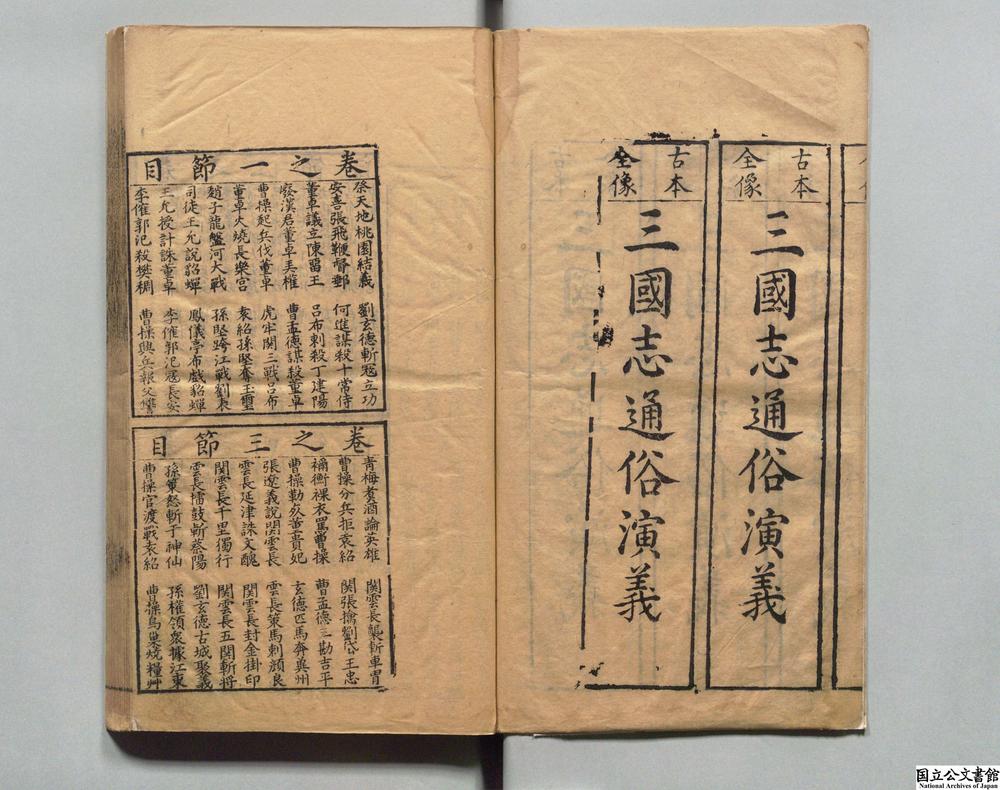 古本
全像
三國志通俗演義
古本
全像
三國志通俗演義
卷之一節目
祭天地桃園結義 劉玄德斬寇立功
安喜張飛鞭督郵 何進謀殺十常侍
董卓議立陳畱王 呂布刺殺丁建陽
廢漢君董卓弄權 曹孟德謀殺董卓
曹操起兵伐董卓 虎牢関三戰呂布
董卓火燒長樂宮 袁紹孫堅奪玉璽
趙子龍盤河大戰 孫堅跨江戰劉表
司徒王允說貂蟬 鳳儀亭布戲貂蟬
王允授計誅董卓 李傕郭汜寇長安
李傕郭汜殺樊稠 曹操興兵報父讐
卷之三節目
青梅煮酒論英雄 関雲長襲斬車冑
曹操分兵拒袁紹 関張擒劉岱王忠
禰衡裸衣罵曹操 曹孟德三勘吉平
曹操勒死董貴妃 玄德匹馬奔冀州
張遼義說関雲長 雲長策馬刺顏良
雲長延津誅文醜 関雲長封金掛印
関雲長千里獨行 関雲長五関斬將
雲長擂鼓斬蔡陽 劉玄德古城聚義
孫策怒斬于神仙 孫權領衆據江東
曹操官渡戰袁紹 曹操烏巢燒糧艸
国立公文書館
National Archives of Japan